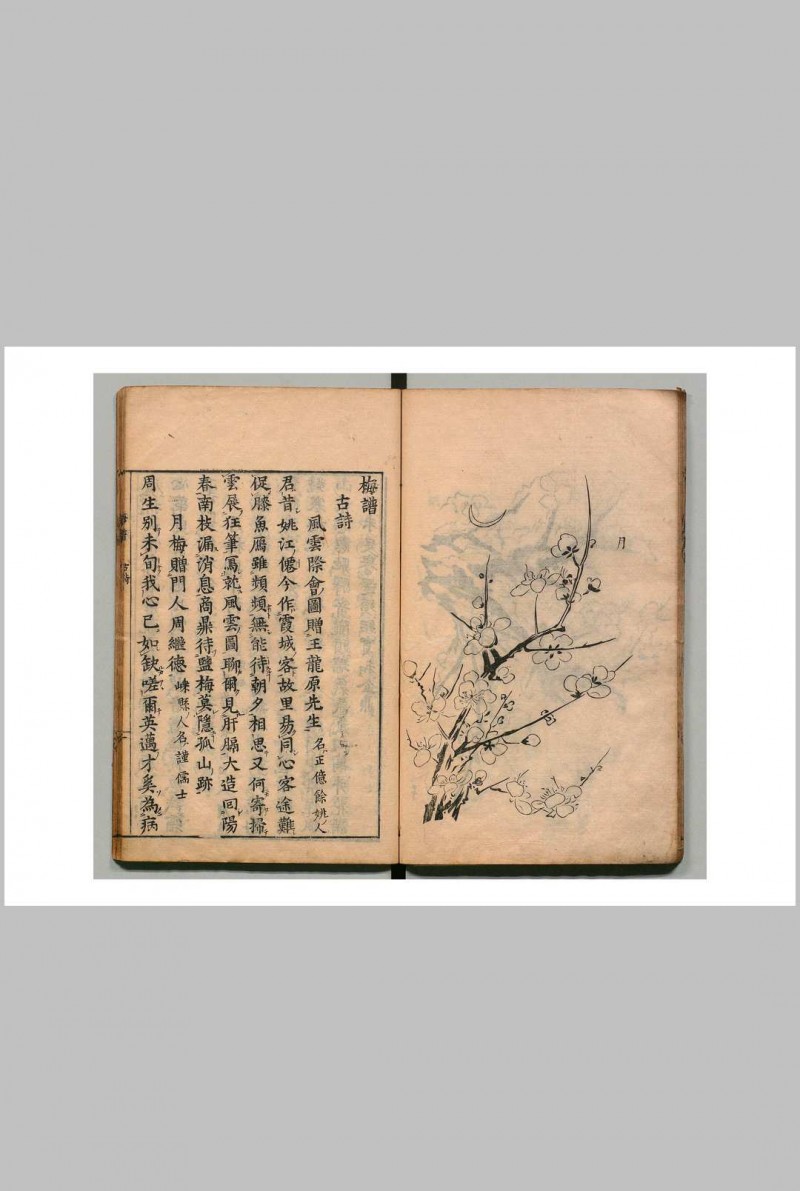 月
梅譜
古詩
風雲際會圖贈王龍原先生 名正億餘姚人
君昔姚江僊今作霞城客故里昜同心客途難
促膝魚鴈雖頻頻無能待朝夕相思又何寄掃
雲展狂筆寫乾風雲圖聊爾見肝膈大造回陽
春南枝漏消息商鼎待鹽梅莫隱孤山跡
月梅贈門人周繼德 嵊縣人名謹儒士
周生別未旬我心已如缺嗟爾英邁才奚為病